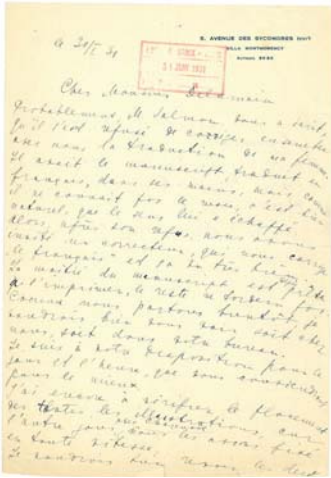 5, AVENUE DES SYCOMORES (XVIe)
VILLA MONTMORENCY
le 30/I 31
Cher Monsieur Delamain
Probablement, M. Salmon vous a écrit
qu'il s'est refusé de corriger ensemble
avec nous la traduction de ma femme.
Il avait le manuscript traduit en
français, dans ses mains, mais comme
il ne connait pas le russe, c'est bien
naturel, que le sens lui a échappé.
Alors, après son refus, nous avons
invité un correcteur, qui nous corrige
"le français" et ça va très bien.
La moitié du manuscript est prête
à l'imprimer, le reste ne tardera pas.
Comme nous partons bientôt, je
voudrais bien vous voir soit chez
nous, soit dans votre bureau.
Je suis à votre disposition pour le
jour et l'heure, que vous conviendrez
pour le mieux.
J'ai encore à vérifier le placement
des toutes les illustrations, car
l'autre jour nous les avons fixé
en toute vitesse.
Je voudrais bien les deux